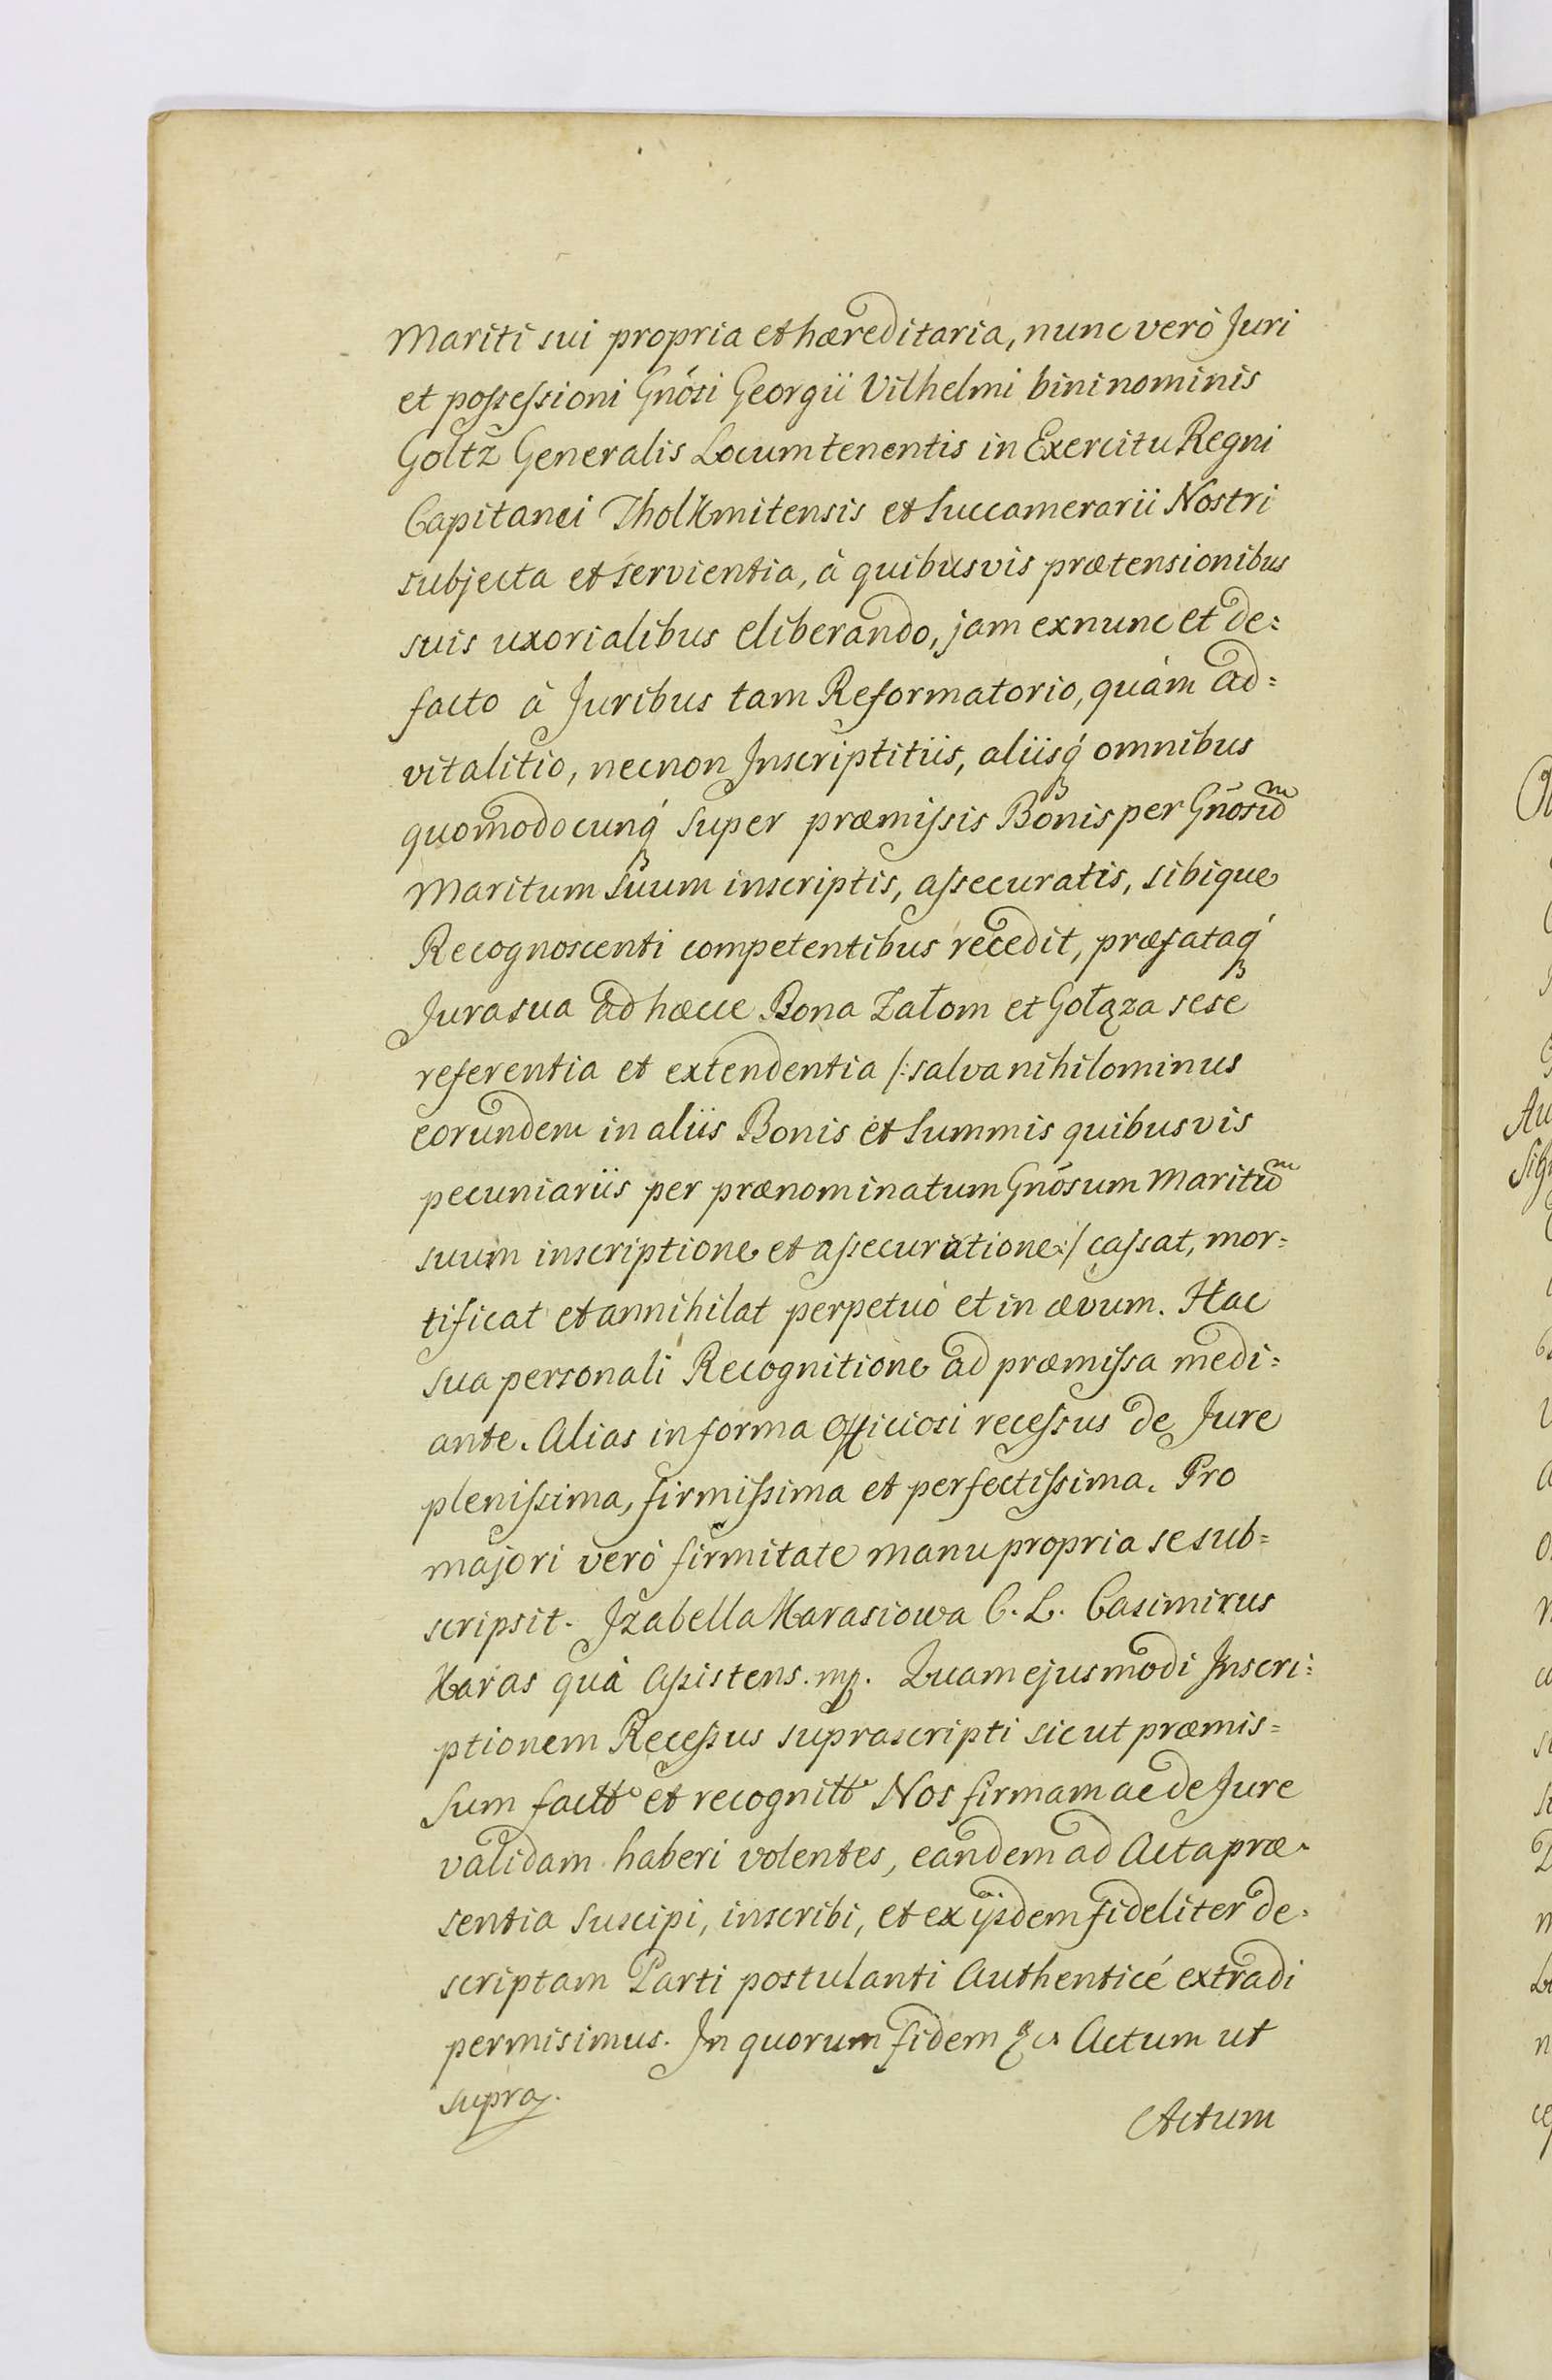 Mariti sui propria et hæreditaria, nunc verò Juri
et possessioni Gnosi Georgii Vilhelmi bini nominis
Goltz Generalis Locumtenentis in Exercitu Regni
Capitanei Tholkmitensis et Succamerarii Nostri
subjecta et servientia, à quibusvis prætensionibus
suis uxorialibus eliberando, jam exnunc et de=
facto à Juribus tam Reformatorio, quàm ad=
vitalitio, necnon Inscriptitiis, aliisq́ omnibus
quomodocunq́ super præmissis Bonis per Gnosum
Maritum suum inscriptis, assecuratis, sibique
Recognoscenti competentibus recedit, præfataq́
Jura sua ad hæcce Bona Załom et Gołąza sese
referentia et extendentia /:salva nihilominus
eorundem in aliis Bonis et Summis quibusvis
pecuniariis per prænominatum Gnosum Maritum
suum inscriptione et assecuratione:/ cassat, mor=
tificat et annihilat perpetuò et in ævum. Hac
sua personali Recognitione ad præmissa medi=
ante. Alias in forma officiosi recessus de Jure
plenissima, firmissima et perfectissima. Pro
majori verò firmitate manu propria se sub=
scripsit. Izabella Karasiowa C. L. Casimirus
Karas quà Assistens. mp. Quam ejusmodi Inscri=
ptionem Recessus suprascripti sic ut præmis=
sum factt et recognitt Nos firmam ac de Jure
validam haberi volentes, eandem ad Acta præ=
sentia suscipi, inscribi, et ex ijsdem fideliter de=
scriptam Parti postulanti Authenticé extradi
permisimus. In quorum fidem &c Actum ut
supra.
Actum
Au